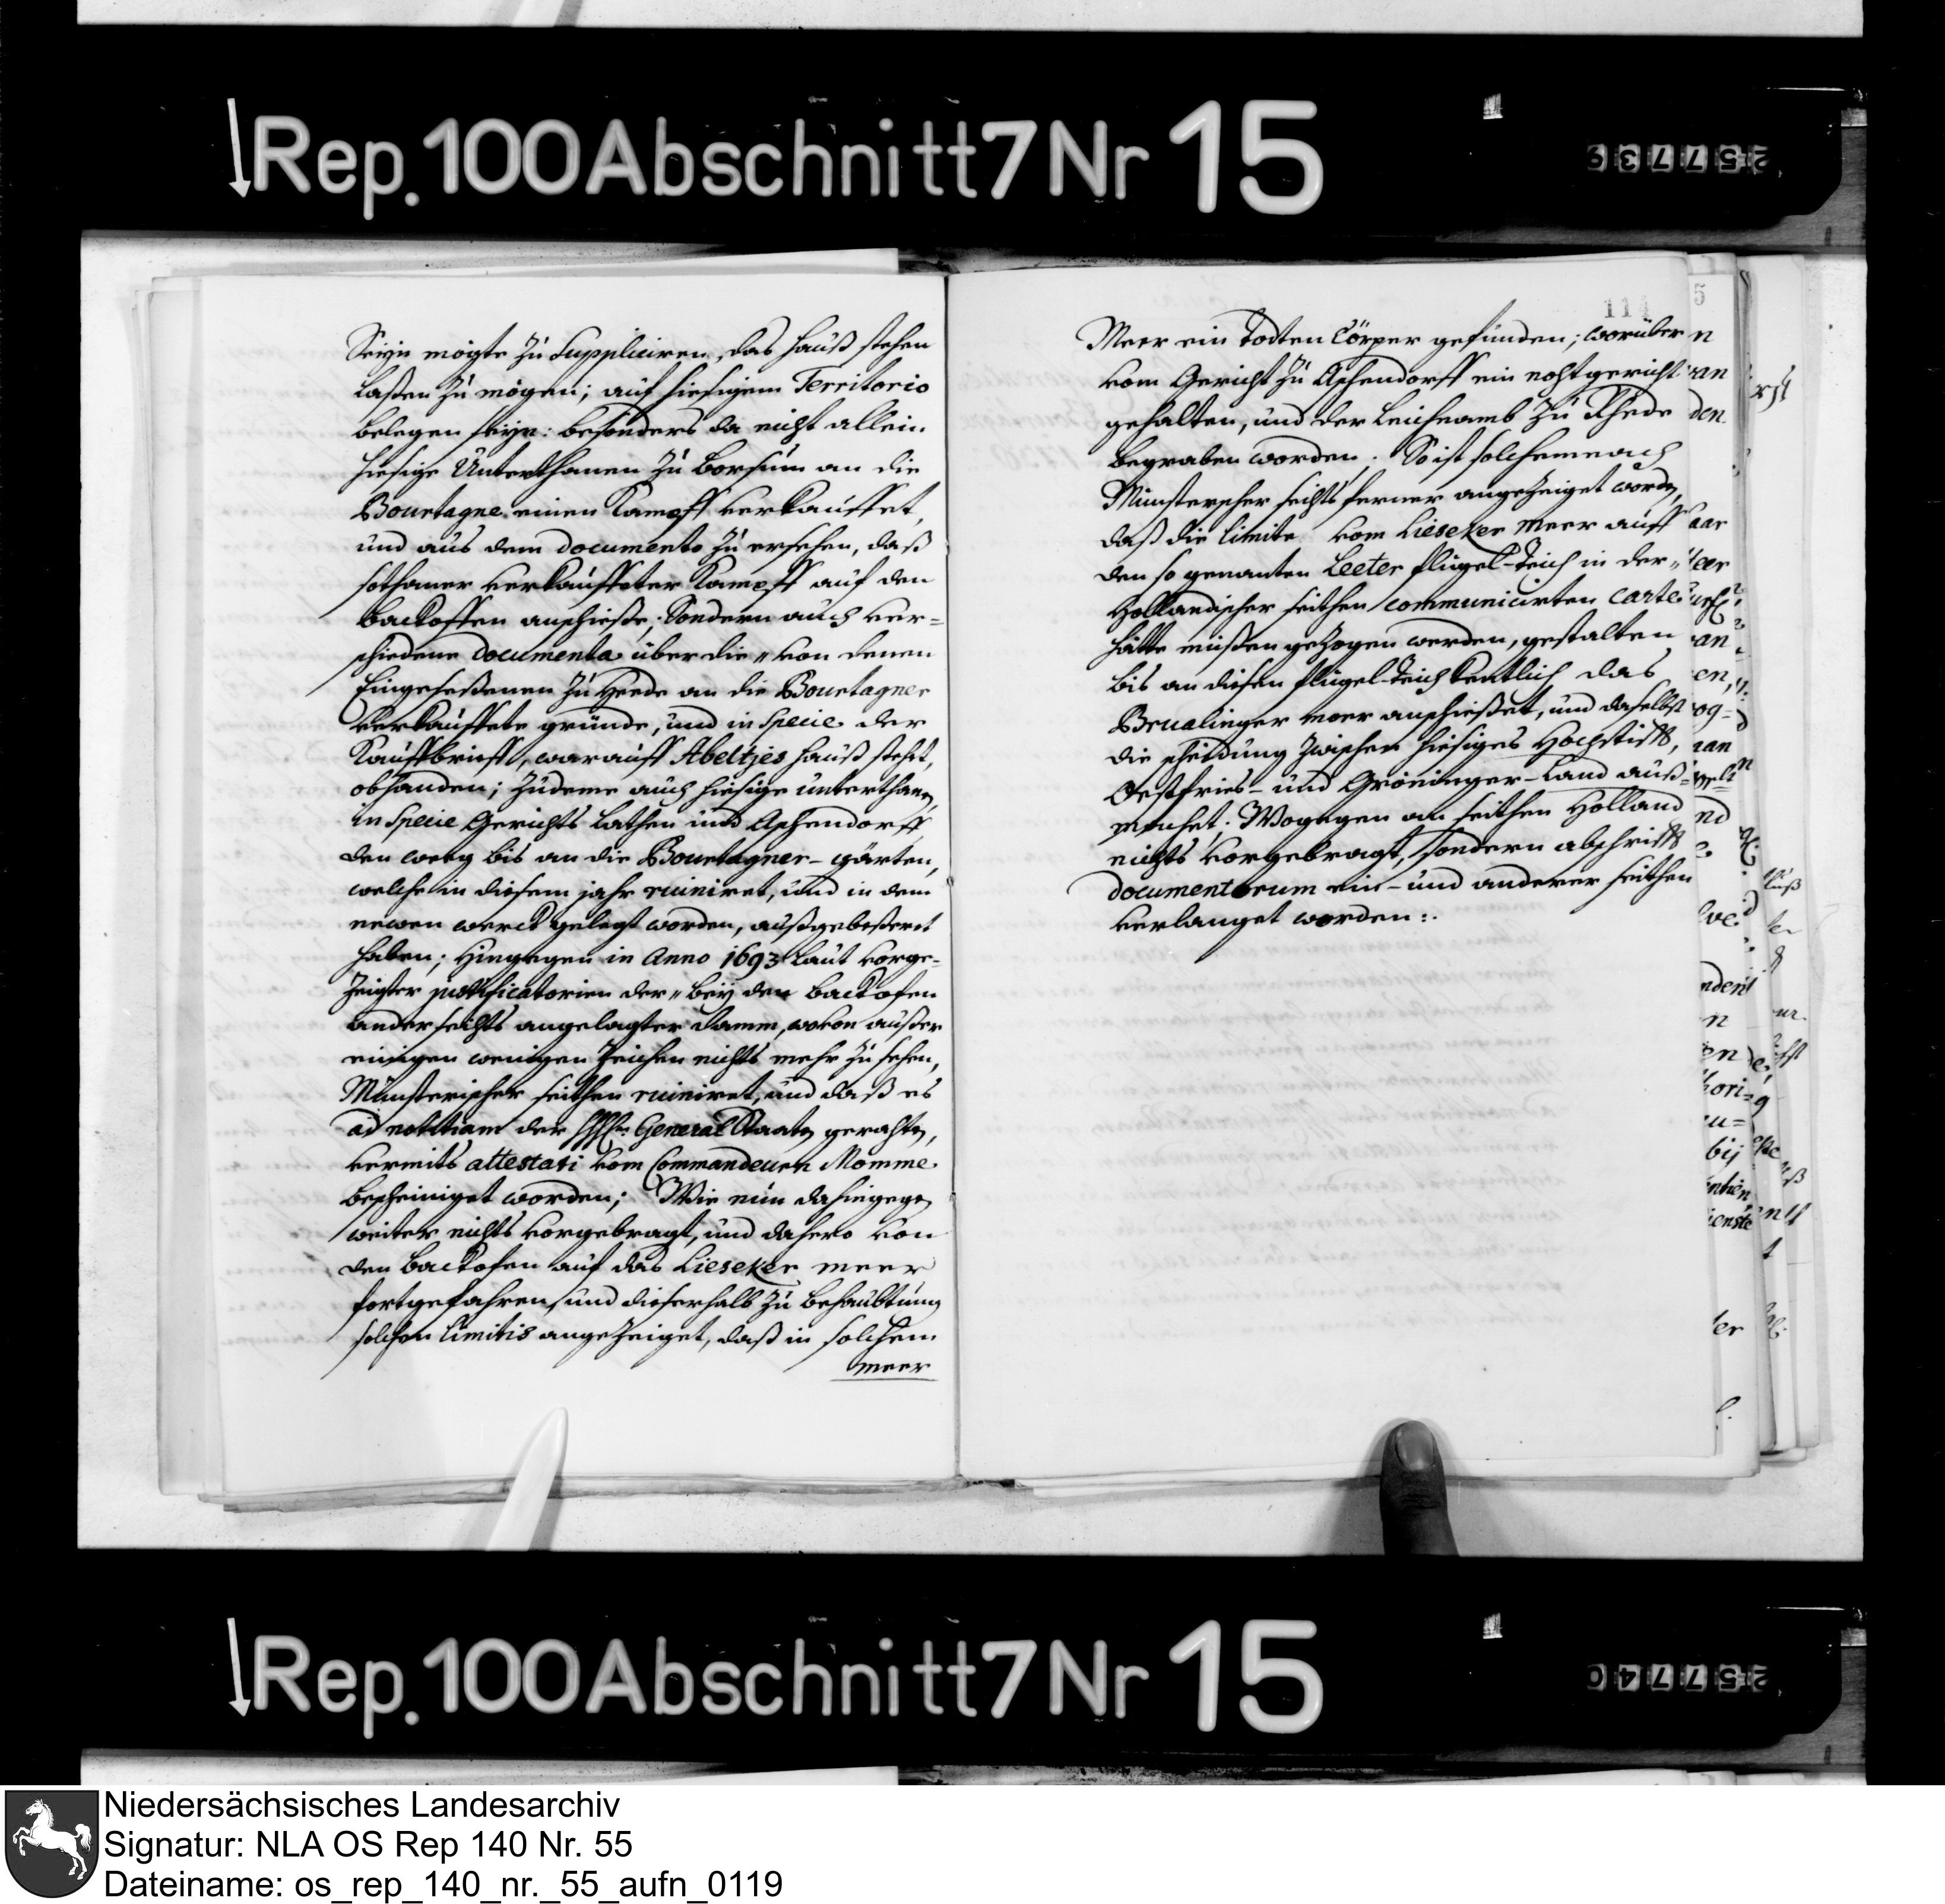 Rep. 100 Abschnitt 7 Nr 15
257739
Seyn mögte zu Suppliciren, das Hauß stehen
laßen zu mögen; auf hiesigem Territorio
belegen seÿn: besonders da nicht allein
hiesige Unterthanen zu Borsum an die
Bourtagne einen Kampff verkauffet,
und aus dem documento zu ersehen, daß
sothaner verkauffter Kampff auf den
backoffen anschieße; Sondern auch ver=
schiedene Documenta über die „ von denen
Eingeseßenen zu Heede an die Bourtagner
verkauffete gründe, und in Specie der
Kauffbrieff, warauff Abeltjes Hauß stehet,
obhanden; zudeme auch hiesige unterthanen,
in Specie Gerichts Lathen und Aschendorff
den weeg bis an die Bourtagner- gärten,
welche in diesem jahr ruiniret, und in dem
newen werck gelegt worden, außgebeßeret
haben; Hingegen in Anno 1693 laut vorge=
zeigter justificatorien der „ beÿ den backofen
anderseiths angelagter Damm, wovon außer
einigen wenigen Zeichen nichts mehr zu sehen,
Münsterischer seithen ruiniret, und daß es
ad notitiam der General Staaten gerahten,
vermits attestati vom Commandeuren Momme
bescheiniget worden; Wie nun dahingegen
weiter nichts vorgebragt, und dahero von
den backofen auf das Lieseker meer
fortgefahren, und dieserhalb zu behaubtung
solchen limitis angezeiget, daß in solchem
meer
114
5
Meer ein Todten Cörper gefunden; worüber
vom Gericht zu Aschendorff ein nohtgericht
gehalten, und der Leichnamb zu Rhede
begraben worden. So ist solchemnach
Münsterscher seiths ferner angezeiget worden,
daß die limite vom Lieseker Meer auff
den so genanten Leeter flügel-Teich in der „
Holländischer seithen communicirten Carte
hätte müßen gezogen werden, gestalten
bis an diesen flügel-Teich kentlich das
Brualinger moor anschießet, und daselbst
die scheidung zwischen hiesiges Hochstift,
Oestfries- und Gröninger-Land auß=
machet. Wogegen an seithen Holland
nichts vorgebragt, sondern abschrifft
documentorum ein- und anderer seithen
verlanget worden:.
Rep. 100 Abschnitt 7 Nr 15
257740
Niedersächsisches Landesarchiv
Signatur: NLA OS Rep 140 Nr. 55
Dateiname: os_rep_140_nr._55_aufn_0119